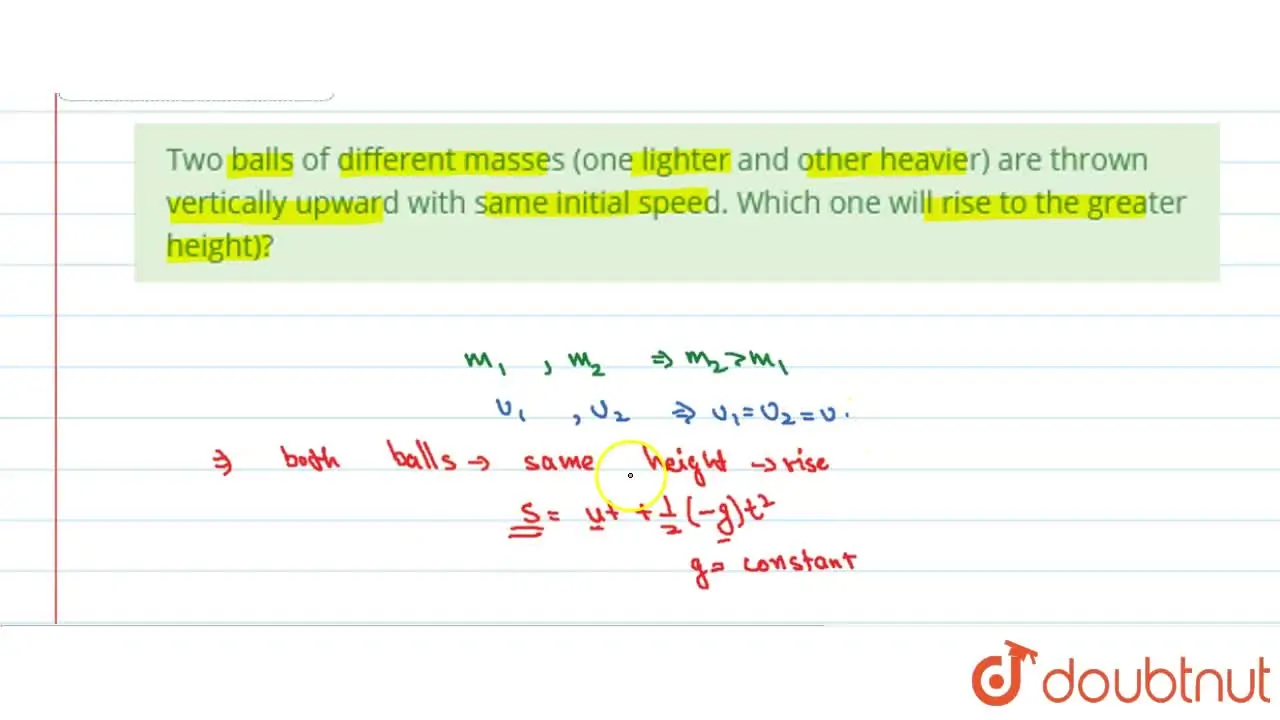 Two balls of different masses (one lighter and other heavier) are thrown
vertically upward with same initial speed. Which one will rise to the greater
height)?
m₁ , m₂ ⇒ m₂>m₁
υ₁ , υ₂ ⇒ υ₁=υ₂=υ.
⇒ both balls → same height → rise
S = ut + 1/2 (-g)t²
g= constant
doubtnut